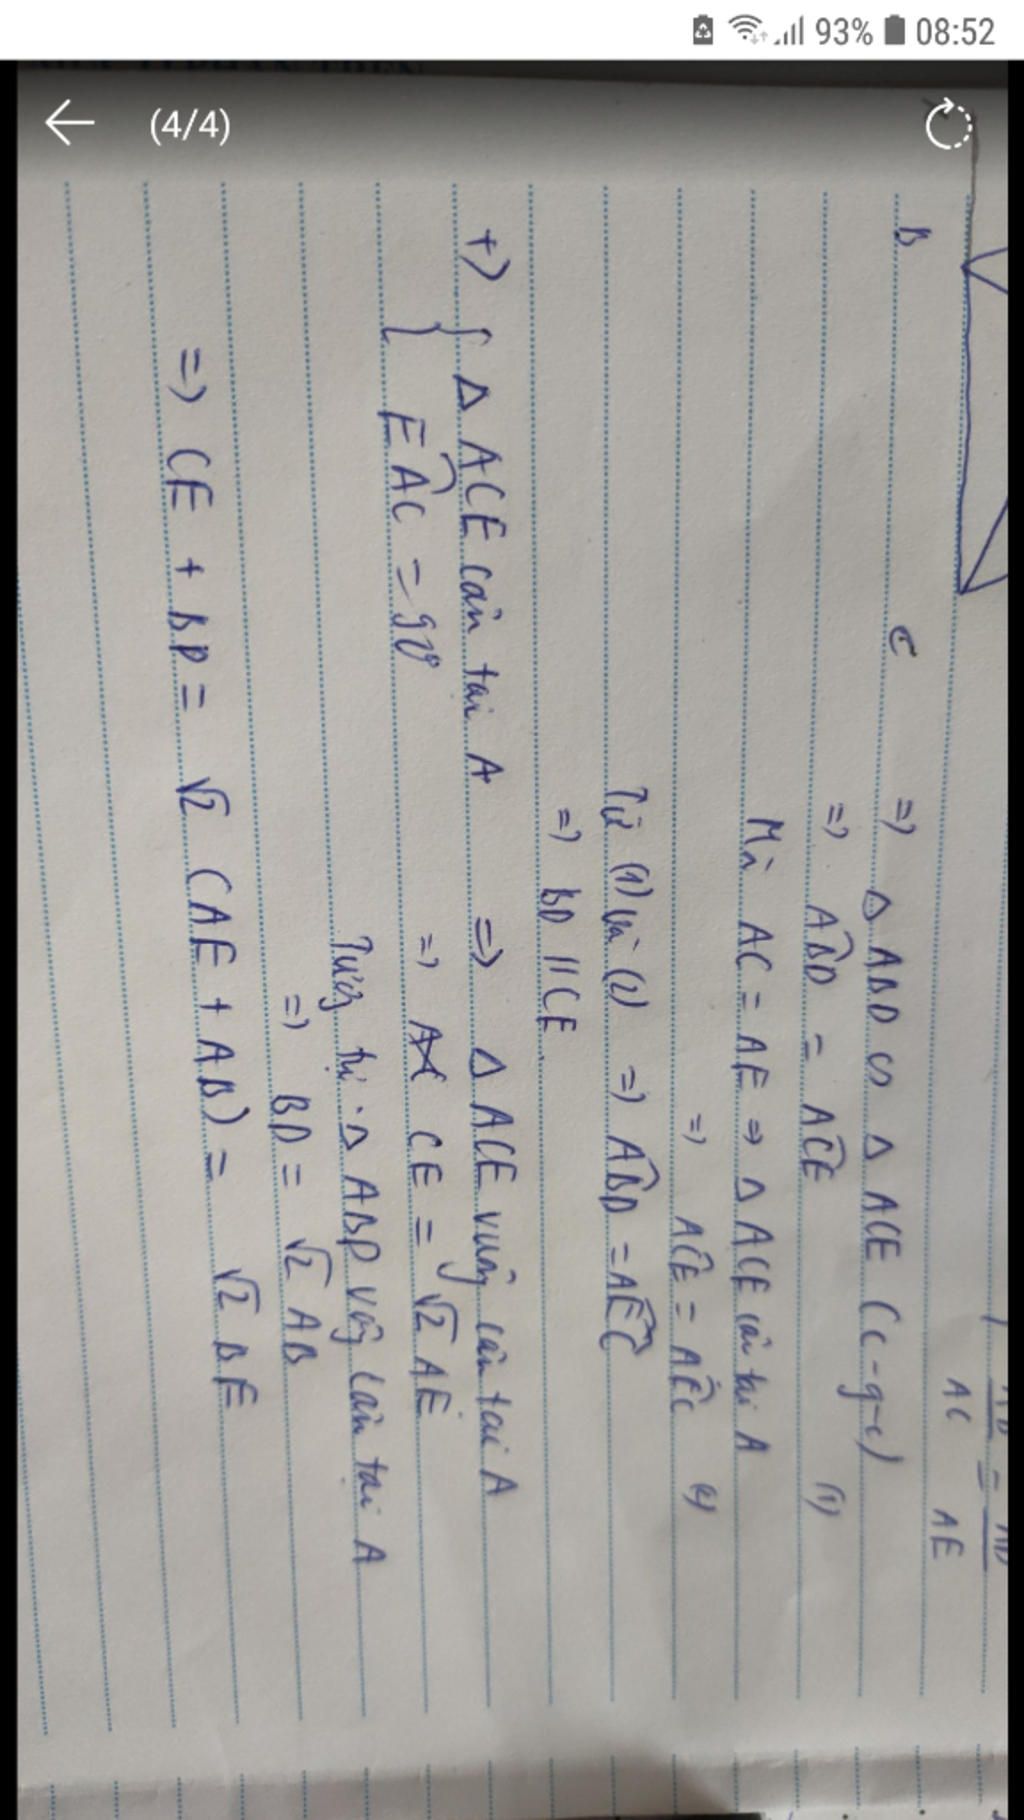 93% 08:52
(4/4)
AC AE
B C
=> Δ ABD ∽ Δ ACE (c-g-c)
=> ABD̂ = AĈE (1)
Mà AC = AE => Δ ACE cân tại A
=> AĈE = AÊC (2)
Từ (1) và (2) => AB̂D = AÊC
=> BD // CE.
+) { Δ ACE cân tại A => Δ ACE vuông cân tại A
EÂC = 90° => CE = √2 AE
Tương tự: Δ ABD vuông cân tại A
=> BD = √2 AB
=> CE + BD = √2 (AE + AB) = √2 BE